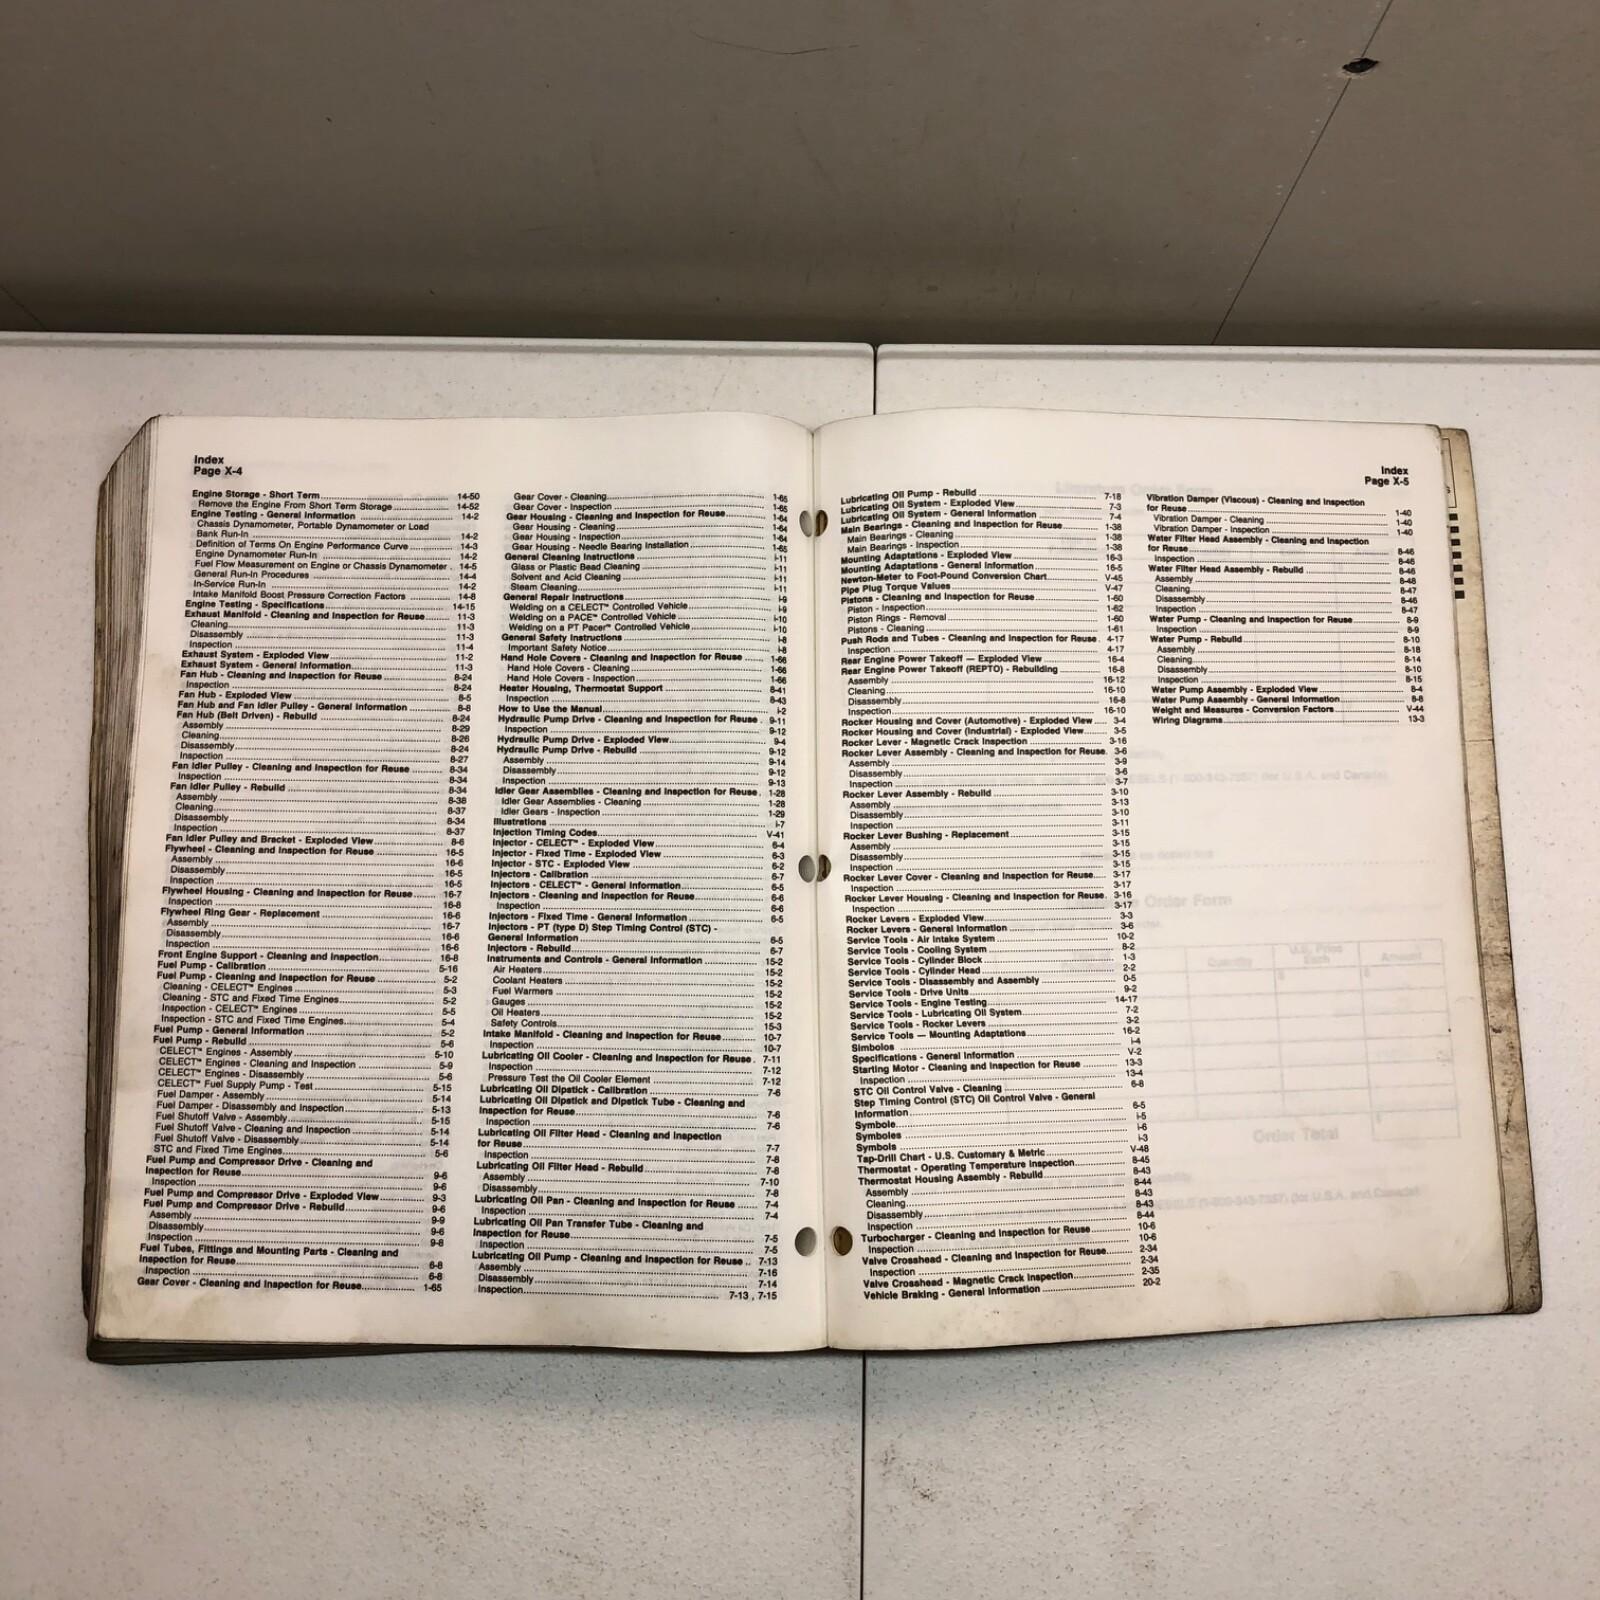 Index
Page X-4
Engine Storage - Short Term 14-50
Remove the Engine From Short Term Storage 14-52
Engine Testing - General Information 14-2
Chassis Dynamometer, Portable Dynamometer or Load
Bank Run-In 14-2
Definition of Terms On Engine Performance Curve 14-3
Engine Dynamometer Run-In 14-2
Fuel Flow Measurement on Engine or Chassis Dynamometer . 14-5
General Run-In Procedures 14-4
In-Service Run-In 14-2
Intake Manifold Boost Pressure Correction Factors 14-8
Engine Testing - Specifications 14-15
Exhaust Manifold - Cleaning and Inspection for Reuse 11-3
Cleaning 11-3
Disassembly 11-3
Inspection 11-4
Exhaust System - Exploded View 11-2
Exhaust System - General Information 11-3
Fan Hub - Cleaning and Inspection for Reuse 8-24
Inspection 8-24
Fan Hub - Exploded View 8-5
Fan Hub and Fan Idler Pulley - General Information 8-8
Fan Hub (Belt Driven) - Rebuild 8-24
Assembly 8-29
Cleaning 8-26
Disassembly 8-24
Inspection 8-27
Fan Idler Pulley - Cleaning and Inspection for Reuse 8-34
Inspection 8-34
Fan Idler Pulley - Rebuild 8-34
Assembly 8-38
Cleaning 8-37
Disassembly 8-34
Inspection 8-37
Fan Idler Pulley and Bracket - Exploded View 8-6
Flywheel - Cleaning and Inspection for Reuse 16-5
Assembly 16-6
Disassembly 16-5
Inspection 16-5
Flywheel Housing - Cleaning and Inspection for Reuse 16-7
Inspection 16-8
Flywheel Ring Gear - Replacement 16-6
Assembly 16-7
Disassembly 16-6
Inspection 16-6
Front Engine Support - Cleaning and Inspection 16-8
Fuel Pump - Calibration 5-16
Fuel Pump - Cleaning and Inspection for Reuse 5-2
Cleaning - CELECT™ Engines 5-3
Cleaning - STC and Fixed Time Engines 5-2
Inspection - CELECT™ Engines 5-5
Inspection - STC and Fixed Time Engines 5-4
Fuel Pump - General Information 5-2
Fuel Pump - Rebuild 5-6
CELECT™ Engines - Assembly 5-10
CELECT™ Engines - Cleaning and Inspection 5-9
CELECT™ Engines - Disassembly 5-6
CELECT™ Fuel Supply Pump - Test 5-15
Fuel Damper - Assembly 5-14
Fuel Damper - Disassembly and Inspection 5-13
Fuel Shutoff Valve - Assembly 5-15
Fuel Shutoff Valve - Cleaning and Inspection 5-14
Fuel Shutoff Valve - Disassembly 5-14
STC and Fixed Time Engines 5-6
Fuel Pump and Compressor Drive - Cleaning and
Inspection for Reuse 9-6
Inspection 9-6
Fuel Pump and Compressor Drive - Exploded View 9-3
Fuel Pump and Compressor Drive - Rebuild 9-6
Assembly 9-9
Disassembly 9-6
Inspection 9-8
Fuel Tubes, Fittings and Mounting Parts - Cleaning and
Inspection for Reuse 6-8
Inspection 6-8
Gear Cover - Cleaning and Inspection for Reuse 1-65
Gear Cover - Cleaning 1-65
Gear Cover - Inspection 1-65
Gear Housing - Cleaning and Inspection for Reuse 1-64
Gear Housing - Cleaning 1-64
Gear Housing - Inspection 1-64
Gear Housing - Needle Bearing Installation 1-65
General Cleaning Instructions i-11
Glass or Plastic Bead Cleaning i-11
Solvent and Acid Cleaning i-11
Steam Cleaning i-11
General Repair Instructions i-9
Welding on a CELECT™ Controlled Vehicle i-9
Welding on a PACE™ Controlled Vehicle i-10
Welding on a PT Pacer™ Controlled Vehicle i-10
General Safety Instructions i-8
Important Safety Notice i-8
Hand Hole Covers - Cleaning and Inspection for Reuse 1-66
Hand Hole Covers - Cleaning 1-66
Hand Hole Covers - Inspection 1-66
Heater Housing, Thermostat Support 8-41
Inspection 8-43
How to Use the Manual i-2
Hydraulic Pump Drive - Cleaning and Inspection for Reuse . 9-11
Inspection 9-12
Hydraulic Pump Drive - Exploded View 9-4
Hydraulic Pump Drive - Rebuild 9-12
Assembly 9-14
Disassembly 9-12
Inspection 9-13
Idler Gear Assemblies - Cleaning and Inspection for Reuse . 1-28
Idler Gear Assemblies - Cleaning 1-28
Idler Gears - Inspection 1-29
Illustrations i-7
Injection Timing Codes V-41
Injector - CELECT™ - Exploded View 6-4
Injector - Fixed Time - Exploded View 6-3
Injector - STC - Exploded View 6-2
Injectors - Calibration 6-7
Injectors - CELECT™ - General Information 6-5
Injectors - Cleaning and Inspection for Reuse 6-6
Inspection 6-6
Injectors - Fixed Time - General Information 6-5
Injectors - PT (type D) Step Timing Control (STC) -
General Information 6-5
Injectors - Rebuild 6-7
Instruments and Controls - General Information 15-2
Air Heaters 15-2
Coolant Heaters 15-2
Fuel Warmers 15-2
Gauges 15-2
Oil Heaters 15-2
Safety Controls 15-3
Intake Manifold - Cleaning and Inspection for Reuse 10-7
Inspection 10-7
Lubricating Oil Cooler - Cleaning and Inspection for Reuse . 7-11
Inspection 7-12
Pressure Test the Oil Cooler Element 7-12
Lubricating Oil Dipstick - Calibration 7-6
Lubricating Oil Dipstick and Dipstick Tube - Cleaning and
Inspection for Reuse 7-6
Inspection 7-6
Lubricating Oil Filter Head - Cleaning and Inspection
for Reuse 7-7
Inspection 7-8
Lubricating Oil Filter Head - Rebuild 7-8
Assembly 7-10
Disassembly 7-8
Lubricating Oil Pan - Cleaning and Inspection for Reuse 7-4
Inspection 7-4
Lubricating Oil Pan Transfer Tube - Cleaning and
Inspection for Reuse 7-5
Inspection 7-5
Lubricating Oil Pump - Cleaning and Inspection for Reuse .. 7-13
Assembly 7-16
Disassembly 7-14
Inspection 7-13 , 7-15
Index
Page X-5
Lubricating Oil Pump - Rebuild 7-18
Lubricating Oil System - Exploded View 7-3
Lubricating Oil System - General Information 7-4
Main Bearings - Cleaning and Inspection for Reuse 1-38
Main Bearings - Cleaning 1-38
Main Bearings - Inspection 1-38
Mounting Adaptations - Exploded View 16-3
Mounting Adaptations - General Information 16-5
Newton-Meter to Foot-Pound Conversion Chart V-45
Pipe Plug Torque Values V-47
Pistons - Cleaning and Inspection for Reuse 1-60
Piston - Inspection 1-62
Piston Rings - Removal 1-60
Pistons - Cleaning 1-61
Push Rods and Tubes - Cleaning and Inspection for Reuse . 4-17
Inspection 4-17
Rear Engine Power Takeoff — Exploded View 16-4
Rear Engine Power Takeoff (REPTO) - Rebuilding 16-8
Assembly 16-12
Cleaning 16-10
Disassembly 16-8
Inspection 16-10
Rocker Housing and Cover (Automotive) - Exploded View 3-4
Rocker Housing and Cover (Industrial) - Exploded View 3-5
Rocker Lever - Magnetic Crack Inspection 3-16
Rocker Lever Assembly - Cleaning and Inspection for Reuse. 3-6
Assembly 3-9
Disassembly 3-6
Inspection 3-7
Rocker Lever Assembly - Rebuild 3-10
Assembly 3-13
Disassembly 3-10
Inspection 3-11
Rocker Lever Bushing - Replacement 3-15
Assembly 3-15
Disassembly 3-15
Inspection 3-15
Rocker Lever Cover - Cleaning and Inspection for Reuse 3-17
Inspection 3-17
Rocker Lever Housing - Cleaning and Inspection for Reuse. 3-16
Inspection 3-17
Rocker Levers - Exploded View 3-3
Rocker Levers - General Information 3-6
Service Tools - Air Intake System 10-2
Service Tools - Cooling System 8-2
Service Tools - Cylinder Block 1-3
Service Tools - Cylinder Head 2-2
Service Tools - Disassembly and Assembly 0-5
Service Tools - Drive Units 9-2
Service Tools - Engine Testing 14-17
Service Tools - Lubricating Oil System 7-2
Service Tools - Rocker Levers 3-2
Service Tools — Mounting Adaptations 16-2
Simbolos i-4
Specifications - General Information V-2
Starting Motor - Cleaning and Inspection for Reuse 13-3
Inspection 13-4
STC Oil Control Valve - Cleaning 6-8
Step Timing Control (STC) Oil Control Valve - General
Information 6-5
Symbole i-5
Symboles i-6
Symbols i-3
Tap-Drill Chart - U.S. Customary & Metric V-48
Thermostat - Operating Temperature Inspection 8-45
Thermostat Housing Assembly - Rebuild 8-43
Assembly 8-44
Cleaning 8-43
Disassembly 8-43
Inspection 8-44
Turbocharger - Cleaning and Inspection for Reuse 10-6
Inspection 10-6
Valve Crosshead - Cleaning and Inspection for Reuse 2-34
Inspection 2-34
Valve Crosshead - Magnetic Crack Inspection 2-35
Vehicle Braking - General Information 20-2
Vibration Damper (Viscous) - Cleaning and Inspection
for Reuse 1-40
Vibration Damper - Cleaning 1-40
Vibration Damper - Inspection 1-40
Water Filter Head Assembly - Cleaning and Inspection
for Reuse 8-46
Inspection 8-46
Water Filter Head Assembly - Rebuild 8-46
Assembly 8-48
Cleaning 8-47
Disassembly 8-46
Inspection 8-47
Water Pump - Cleaning and Inspection for Reuse 8-9
Inspection 8-9
Water Pump - Rebuild 8-10
Assembly 8-18
Cleaning 8-14
Disassembly 8-10
Inspection 8-15
Water Pump Assembly - Exploded View 8-4
Water Pump Assembly - General Information 8-8
Weight and Measures - Conversion Factors V-44
Wiring Diagrams 13-3